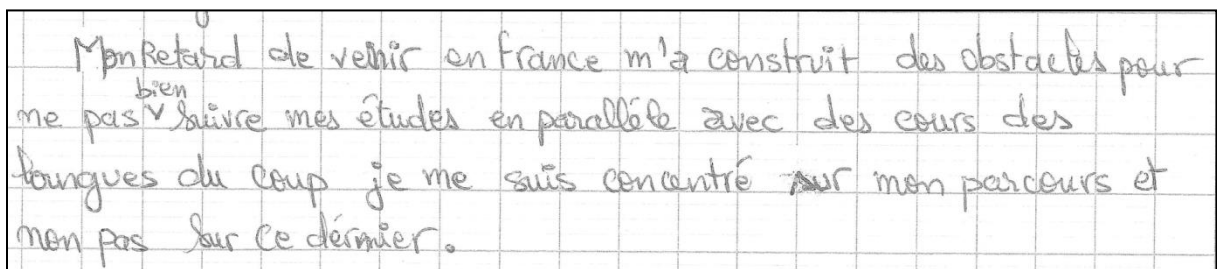 Mon Retard de venir en France m'a construit des obstacles pour
ne pas bien suivre mes études en paralléle avec des cours des
langues du coup je me suis concentré sur mon parcours et
non pas sur ce dérnier.